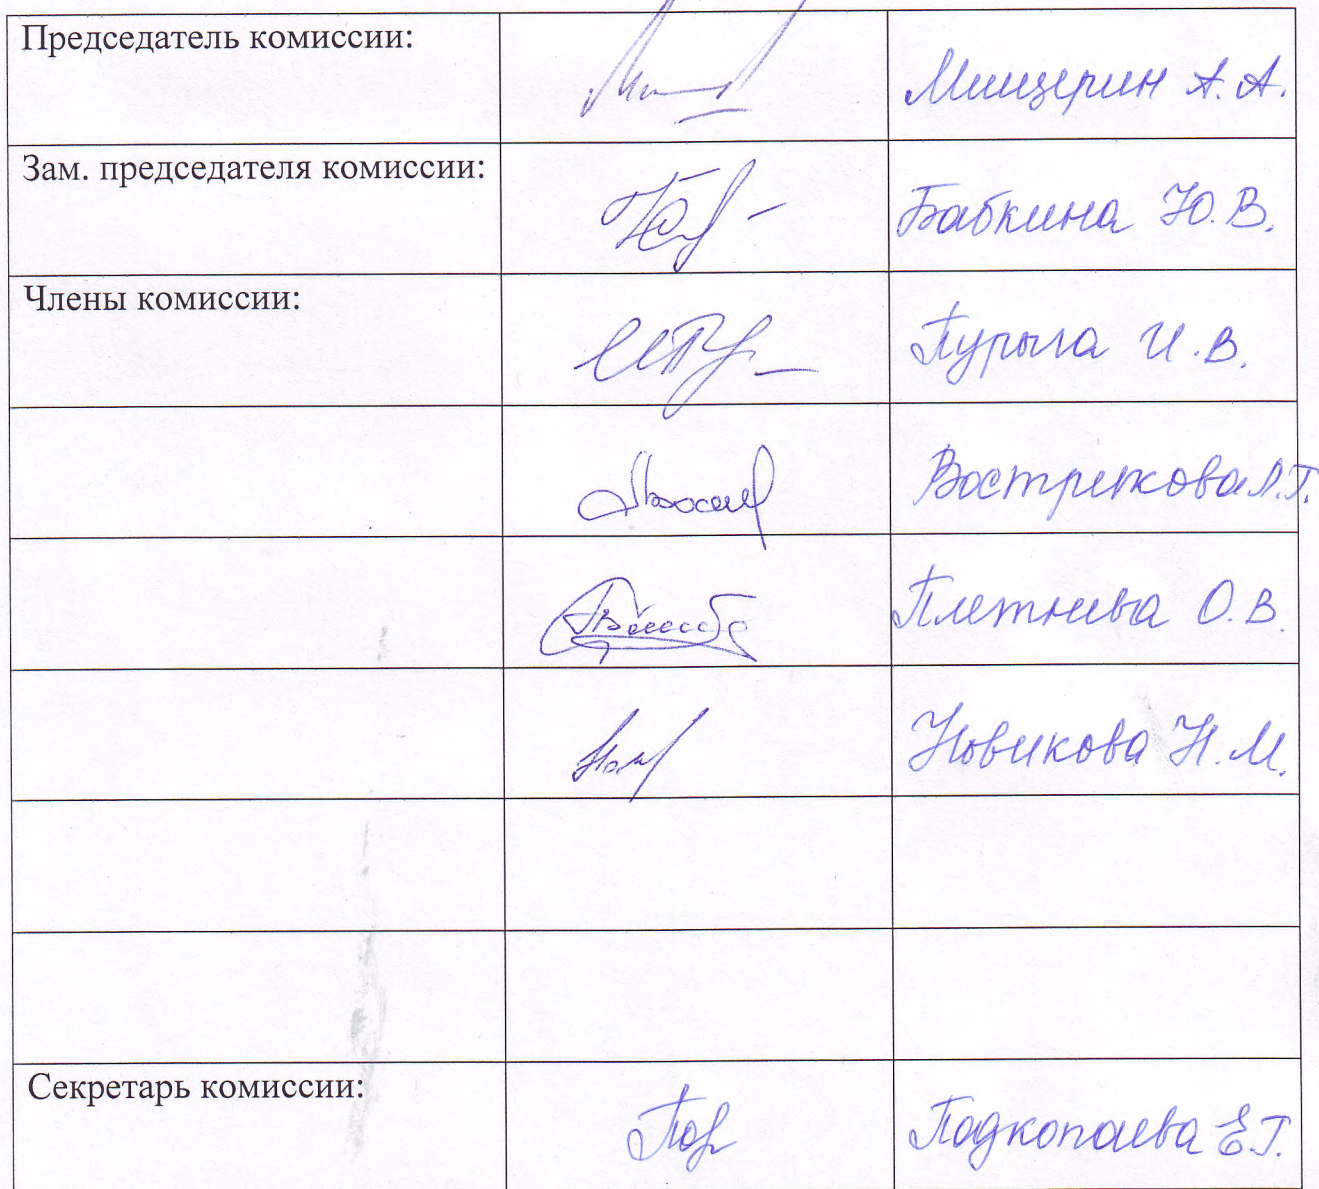 Председатель комиссии:
Мищерин А. А.
Зам. председателя комиссии:
Бабкина Ю. В.
Члены комиссии:
Пурыга И. В.
Вострикова Л.Г.
Плетнева О. В.
Новикова Н. М.
Секретарь комиссии:
Подкопаева Е.Г.